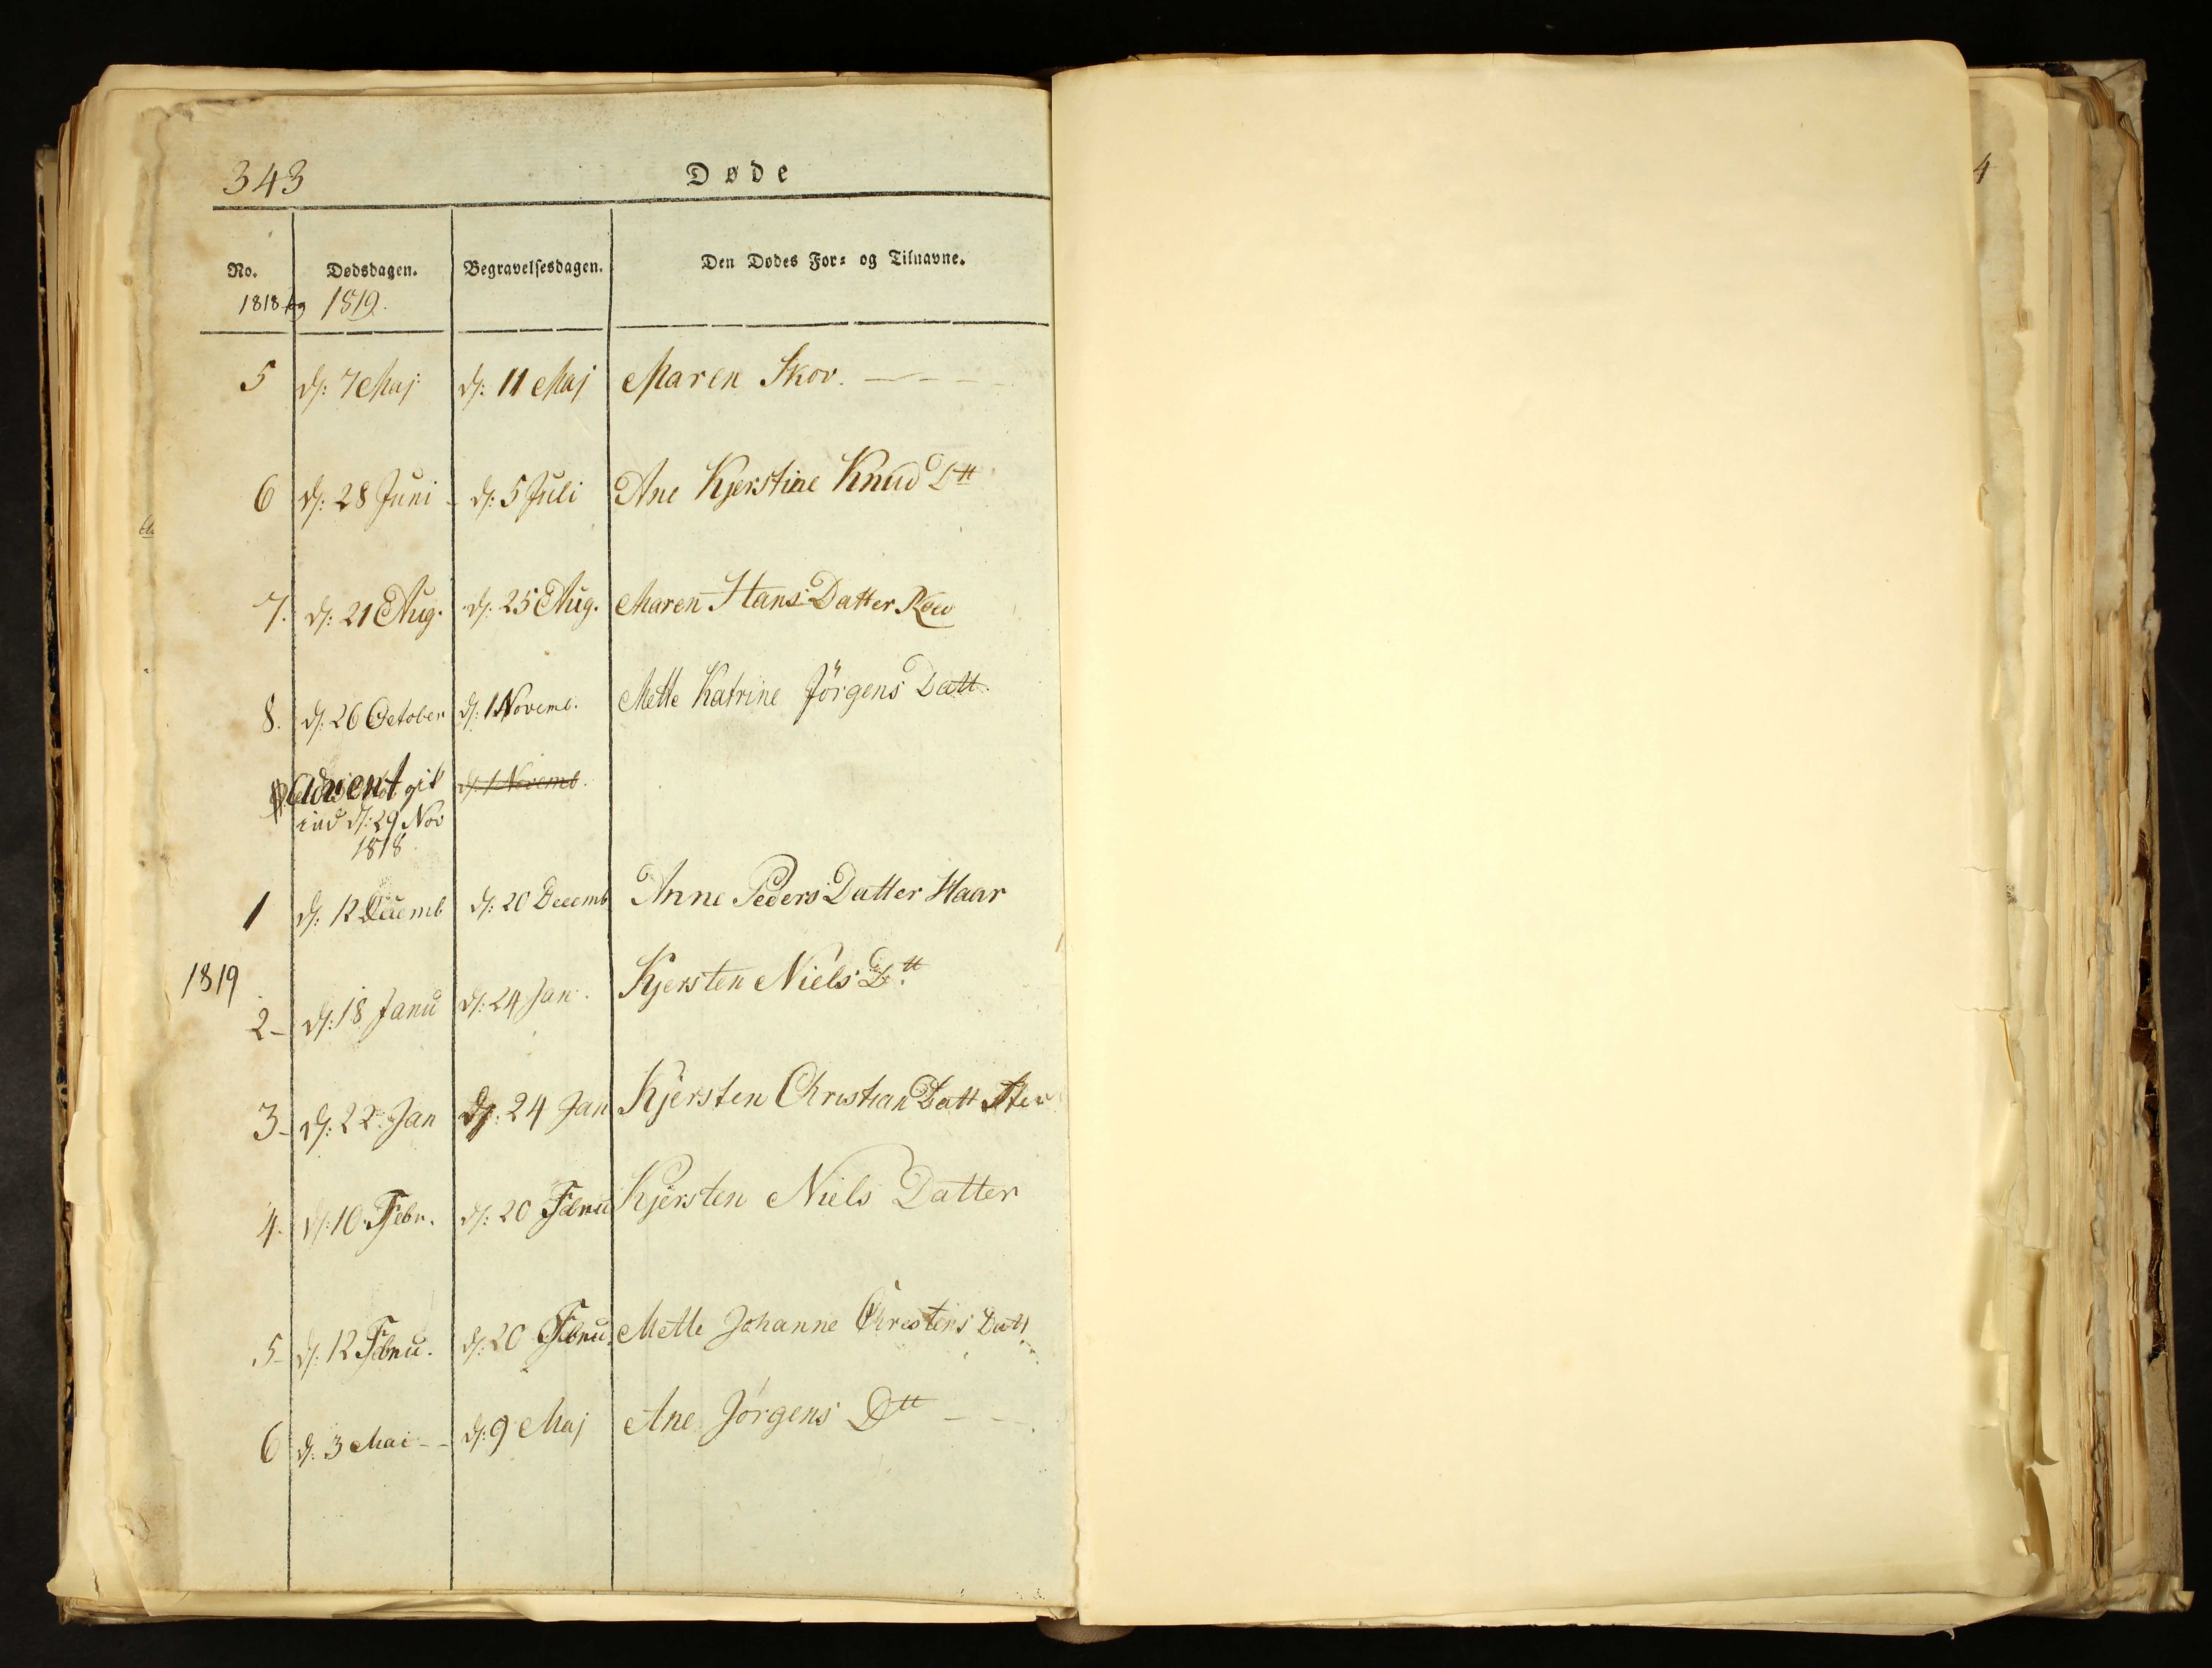 343
Døde
No. Dødsdagen. Begravelsesdagen. Den Dødes For- og Tilnavne.
1818 og 1819.
5 d: 7 Maj d: 11 Maj Maren Skov.
6 d: 28 Juni d: 5 Juli Ane Kjerstine Knud Dtt
7. d: 21 Aug. d: 25 Aug. Maren Hans Datter
8. d: 26 October d: 1 Novemb. Mette Katrine Jörgens Datt.
Advent gik d: 1 Novemb.
ind d: 29 Nov
1818
1 d: 12 Decemb d: 20 Decemb Anne Peders Datter Haar
1819
2 d: 18 Janu d: 24 Jan. Kjersten Niels Dtt
3 d: 22 Jan d: 24 Jan Kjersten Christian Datt
4. d: 10 Febr. d: 20 Febru Kjersten Niels Datter
5 d: 12 Febru. d: 20 Febru. Mette Johanne Chrestens Datt
6 d: 3 Mai d: 9 Maj Ane Jörgens Dtt
4